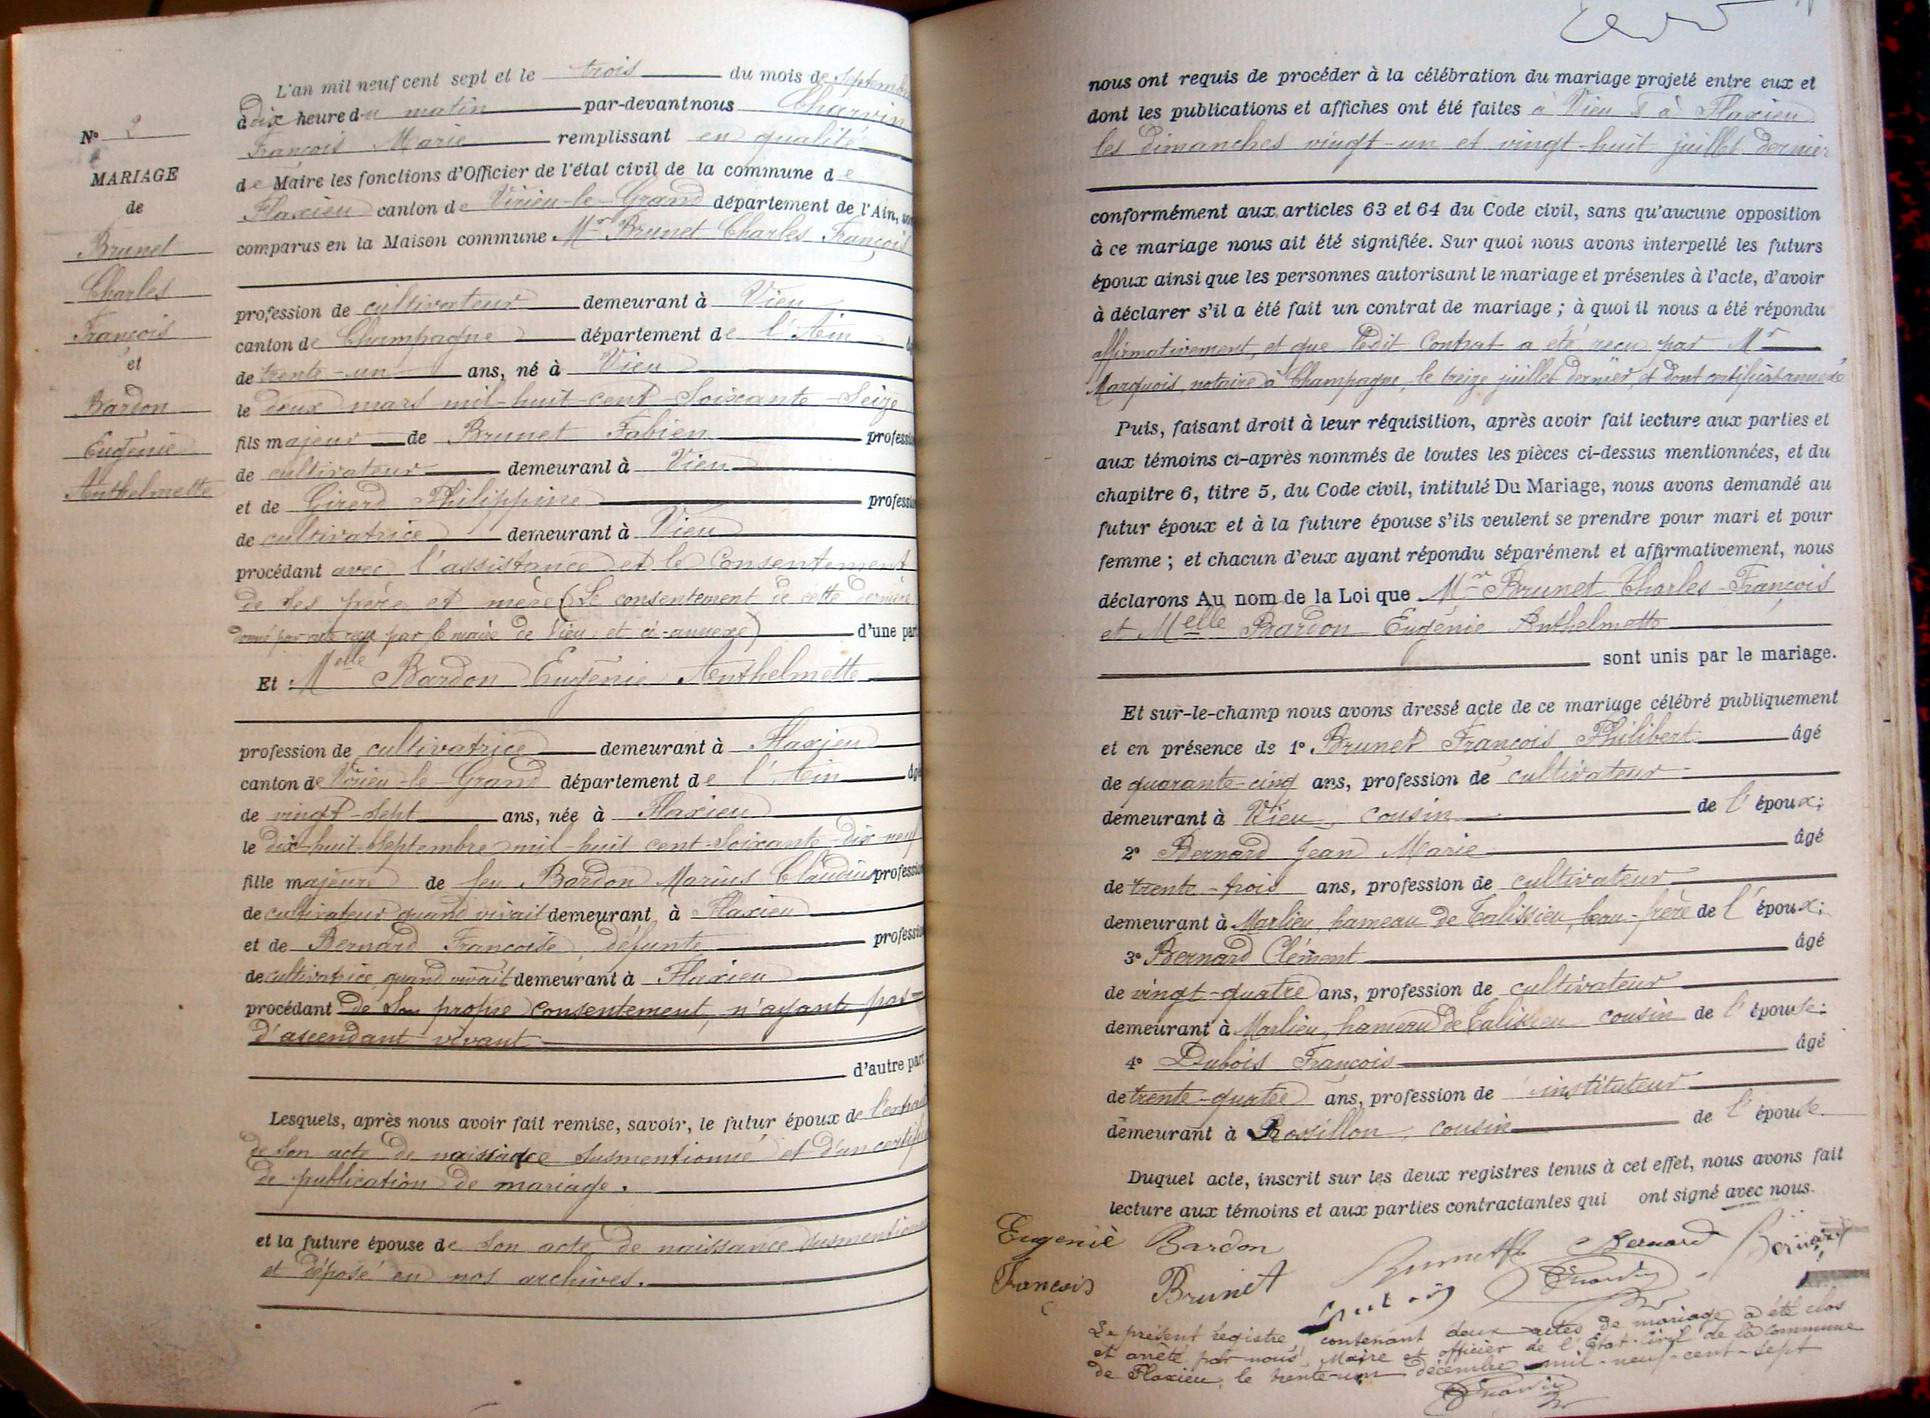 L'an mil neuf cent sept et le trois du mois de Septembre
à dix heure du matin par-devant nous Charvin
François Marie remplissant en qualité
de Maire les fonctions d'Officier de l'état civil de la commune de
Flaxieu canton de Virieu-le-Grand département de l'Ain, sont
comparus en la Maison commune Mr Brunet Charles François
N° 2
MARIAGE
de
Brunet
Charles
François
et
Bardon
Eugénie
Anthelmette
profession de cultivateur demeurant à Vieu
canton de Champagne département de l'Ain
de trente-un ans, né à Vieu
le deux mars mil-huit-cent-Soixante-Seize
fils majeur de Brunet Fabien profession
de cultivateur demeurant à Vieu
et de Girerd Philippine profession
de cultivatrice demeurant à Vieu
procédant avec l'assistance et le Consentement
de ses père et mère (Le consentement de cette dernière
par le maire de Vieu et ci-annexé) d'une part
Et Melle Bardon Eugénie Anthelmette
profession de cultivatrice demeurant à Flaxieu
canton de Virieu-le-Grand département de l'Ain âgé
de vingt-sept ans, née à Flaxieu
le dix-huit Septembre mil-huit cent-soixante-dix-neuf
fille majeure de feu Bardon Marius Claudius profession
de cultivateur quand vivait demeurant à Flaxieu
et de Bernard Françoise, défunte profession
de cultivatrice quand vivait demeurant à Flaxieu
procédant de Son propre consentement, n'ayant pas
d'ascendant vivant
d'autre part
Lesquels, après nous avoir fait remise, savoir, le futur époux de l'extrait
de Son acte de naissance susmentionné et d'un certificat
de publication de mariage.
et la future épouse de Son acte de naissance susmentionné
et déposé en nos archives.
nous ont requis de procéder à la célébration du mariage projeté entre eux et
dont les publications et affiches ont été faites à Vieu & à Flaxieu
les dimanches vingt-un et vingt-huit juillet dernier
conformément aux articles 63 et 64 du Code civil, sans qu'aucune opposition
à ce mariage nous ait été signifiée. Sur quoi nous avons interpellé les futurs
époux ainsi que les personnes autorisant le mariage et présentes à l'acte, d'avoir
à déclarer s'il a été fait un contrat de mariage ; à quoi il nous a été répondu
affirmativement, et que ledit Contrat a été reçu par Mr
Marquois, notaire à Champagne, le treize juillet dernier, et dont certificat annexé
Puis, faisant droit à leur réquisition, après avoir fait lecture aux parties et
aux témoins ci-après nommés de toutes les pièces ci-dessus mentionnées, et du
chapitre 6, titre 5, du Code civil, intitulé Du Mariage, nous avons demandé au
futur époux et à la future épouse s'ils veulent se prendre pour mari et pour
femme ; et chacun d'eux ayant répondu séparément et affirmativement, nous
déclarons Au nom de la Loi que Mr Brunet Charles-François
et Melle Bardon Eugénie Anthelmette
sont unis par le mariage.
Et sur-le-champ nous avons dressé acte de ce mariage célébré publiquement
et en présence de 1° Brunet François Philibert âgé
de quarante-cinq ans, profession de cultivateur
demeurant à Vieu, cousin de l'époux;
2° Bernard Jean Marie âgé
de trente-trois ans, profession de cultivateur
demeurant à Marlieu, hameau de Talissieu, beau-frère de l'époux;
3° Bernard Clément âgé
de vingt-quatre ans, profession de cultivateur
demeurant à Marlieu, hameau de Talissieu cousin de l'épouse:
4° Dubois François âgé
de trente-quatre ans, profession de instituteur
demeurant à Rossillon, cousin de l'épouse.
Duquel acte, inscrit sur les deux registres tenus à cet effet, nous avons fait
lecture aux témoins et aux parties contractantes qui ont signé avec nous.
Eugenie Bardon Bernard
François Brunet
Le présent registre contenant deux actes de mariage a été clos
et arrêté par nous Maire et officier de l'Etat-civil de la Commune
de Flaxieu, le trente-un décembre mil-neuf-cent-sept